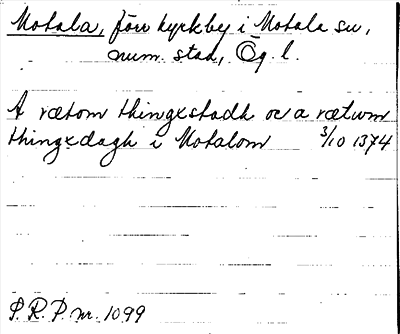 Motala, förr kyrkby i Motala sn,
num. stad, Ög. l.
A rætom thingxstadh oc a rætum
thingxdagh i Motalom 3/10 1374
S. R. P. nr. 1099